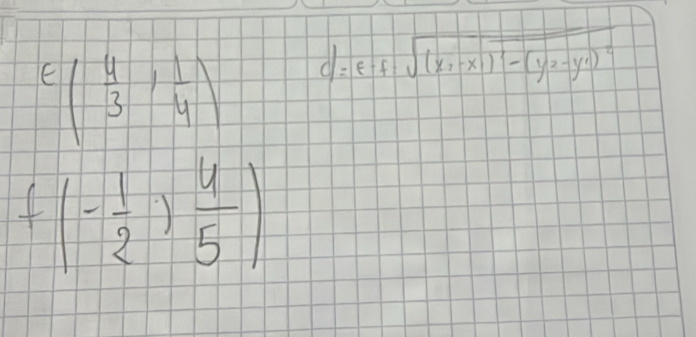 ϵ(4/3, 1/4) d = ϵ-f = √(x₂-x₁)²-(y₂-y₁)²
f(-1/2, 4/5)